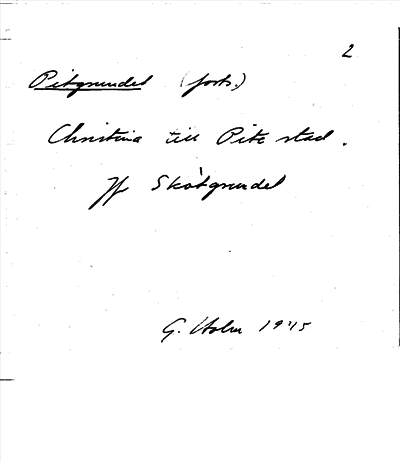 2
Pitgrundet (forts.)
Christina till Pite stad.
Jfr Skötgrundet
G. Holm 1945